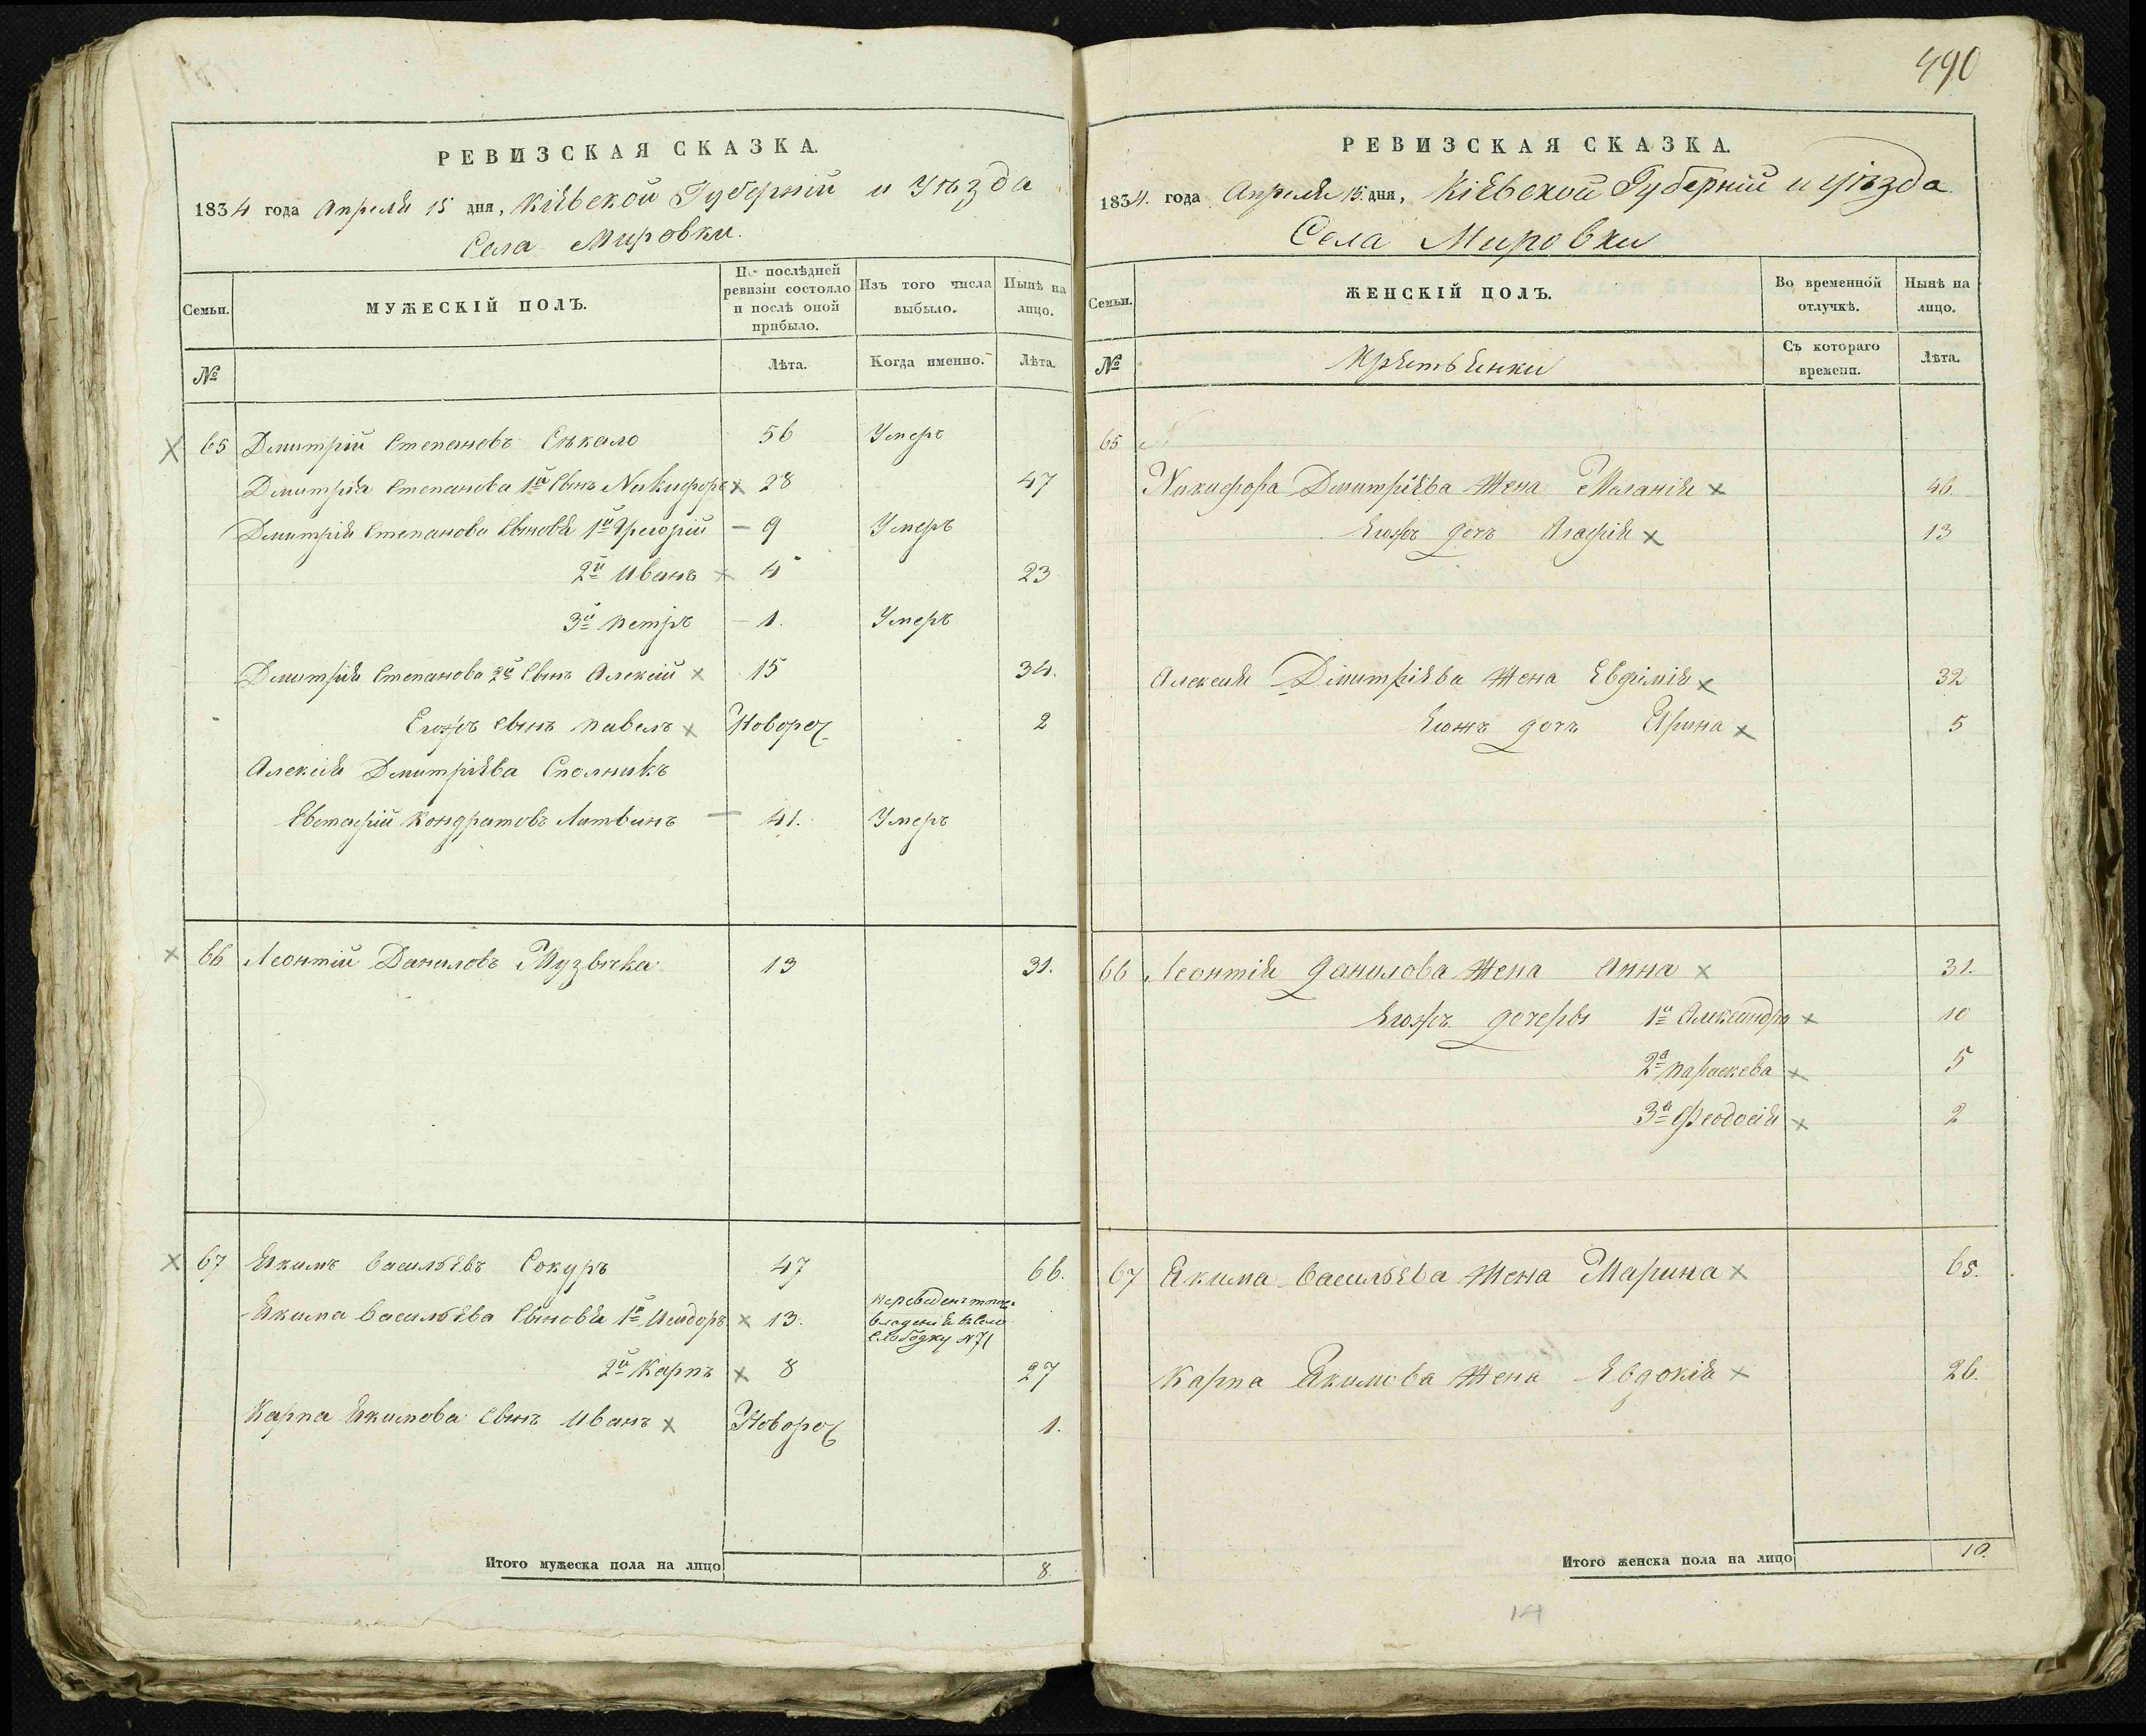 490
РЕВИЗСКАЯ СКАЗКА.
1834 года Апреля 15 дня, Кіевской Губерніи и Уѣзда
Села Мировки.
Семьи.
МУЖЕСКІЙ ПОЛЪ.
По послѣдней ревизіи состояло и послѣ оной прибыло.
Изъ того числа выбыло.
Нынѣ на лицо.
№
Лѣта.
Когда именно.
Лѣта.
65 Дмитрій Степановъ Сѣкало 56 Умеръ
Дмитрія Степанова 1й Сынъ Никифоръ 28 47
Дмитрія Степанова Сыновья 1й Григорій 9 Умеръ
2й Иванъ 4 23
3й Петръ 1. Умеръ
Дмитрія Степанова 2й Сынъ Алексѣй 15 34.
Егожъ сынъ Павелъ Новорож 2
Алексѣя Дмитріева Сполникъ
Евстафій Кондратовъ Литвинъ 41. Умеръ
66 Леонтій Даниловъ Музыка 13 31.
67 Якимъ Васильевъ Сокуръ 47 66.
Якима Васильева Сыновья 1й Исидоръ 13. Переведенъ тогоже
владенія въ село
Слободку №71
2й Карпъ 8 27
Карпа Якимова Сынъ Иванъ Новорож 1.
Итого мужеска пола на лицо 8.
РЕВИЗСКАЯ СКАЗКА.
1834. года Апреля 15. дня, Кіевской Губерніи и уѣзда
Села Мировки
Семьи.
ЖЕНСКІЙ ПОЛЪ.
Во временной отлучкѣ.
Нынѣ на лицо.
№
Крестьянки
Съ котораго времени.
Лѣта.
65
Никифора Дмитріева Жена Меланія 46.
Егожъ дочь Агафія 13
Алексея Дмитріева Жена Евфимія 32
Егожъ дочь Ирина 5
66 Леонтія Данилова Жена Анна 31.
Егожъ дочеры 1я Александра 10
2я Параскева 5
3я Феодосія 2
67 Якима Васильева Жена Марина 65.
Карпа Якимова Жена Евдокія 26.
Итого женска пола на лицо 10.
14